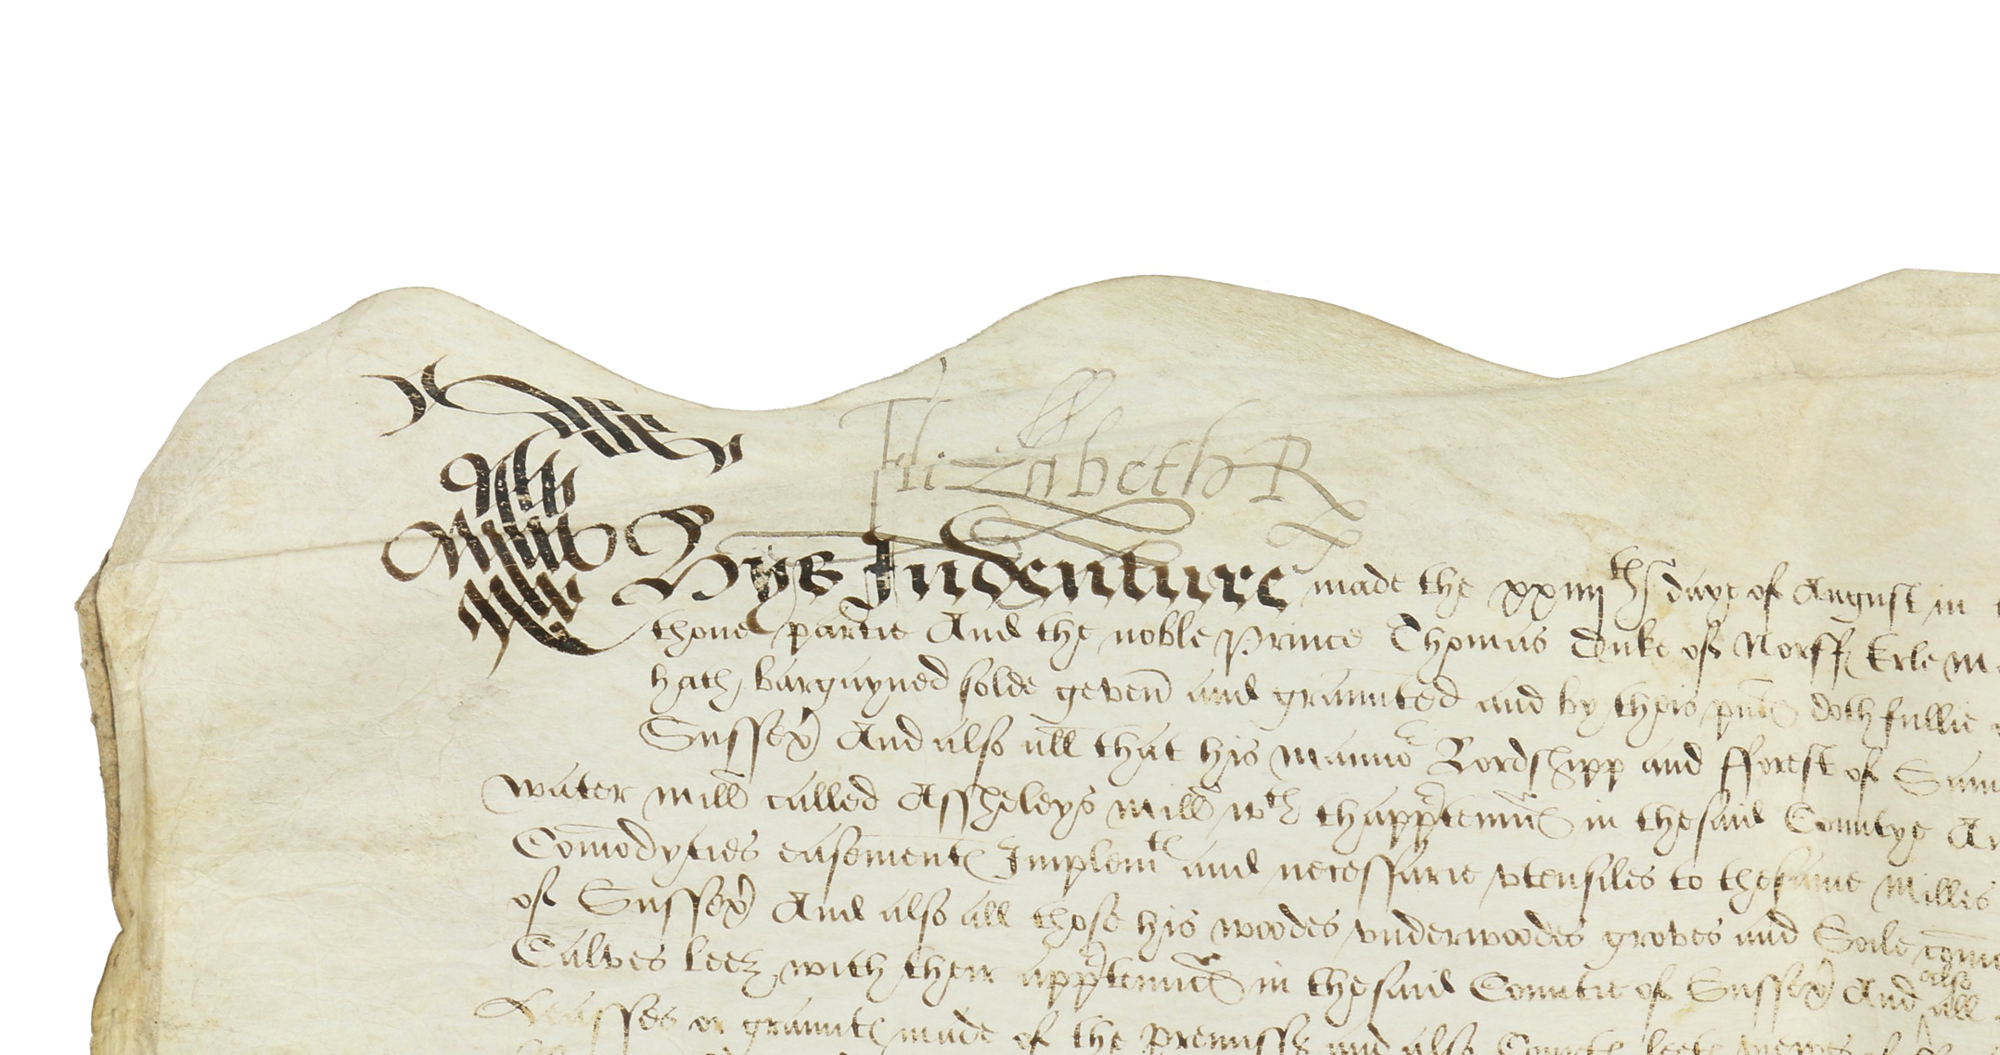 Elizabeth R
Thys Indenture made the xxiiijth daye of August in
thone partie And the noble Prince Thomas Duke of Norff Erle M
hath bargayned solde geven and graunted and by theis pnts doth fullie
Sussex And also all that his Manno^r Lordshipp and fforest of
water mill called Assheleys mill w^th thapp'ten'nc's in thesaid Countye An
Comodyties easements Implem^ts and necessarie vtensiles to thesame Milles
of Sussex And also all those his woodes vnderwoodes groves and Soile
Calves leez with their app'ten'nc's in thesaid Countie of Sussex And also all
Leasses or graunts made of the Premisses and also Courts leets viewes of